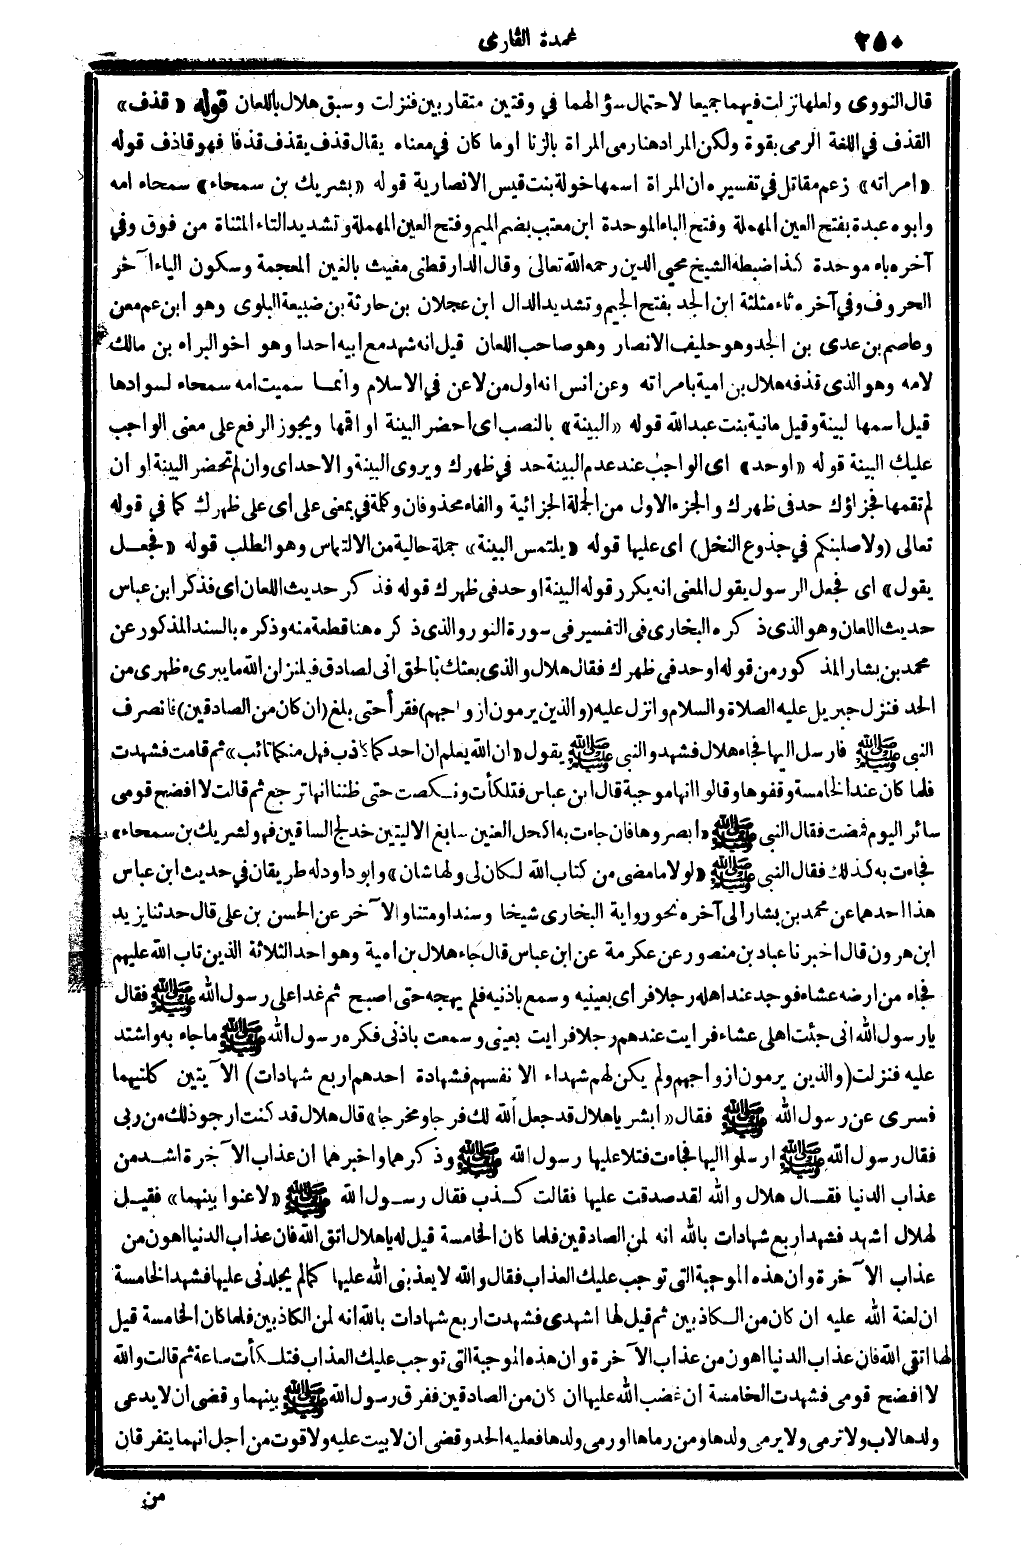 ٢٥٠
عمدة القارى
قال النووى ولعلها نزلت فيهما جميعا لاحتمال سؤالهما في وقتين متقاربين فنزلت وسبق هلال باللعان قوله «قذف»
القذف في اللغة الرمى بقوة ولكن المراد هنا رمى المرأة بالزنا او ما كان في معناه يقال قذف يقذف قذفا فهو قاذف قوله
«امراته» زعم مقاتل في تفسيره ان المراة اسمها خولة بنت قيس الانصارية قوله «بشريك بن سمحاء» سمحاء امه
وابوه عبدة بفتح العين المهملة وفتح الباء الموحدة ابن معتب بضم الميم وفتح العين المهملة وتشديد التاء المثناة من فوق وفي
آخره باء موحدة كذا ضبطه الشيخ محيي الدين رحمه الله تعالى وقال الدارقطنى مغيث بالغين المعجمة وسكون الياء آخر
الحروف وفي آخره ثاء مثلثة ابن الجد بفتح الجيم وتشديد الدال ابن عجلان بن حارثة بن ضبيعة البلوى وهو ابن عم معن
وعاصم بن عدى بن الجد وهو حليف الانصار وهو صاحب اللعان قيل انه شهد مع ابيه احدا وهو اخو البراء بن مالك
لامه وهو الذى قذفه هلال بن امية بامراته وعن انس انه اول من لاعن في الاسلام وانمـا سميت امه سمحاء لسوادها
قيل اسمها لبينة وقيل مانية بنت عبد الله قوله «البينة» بالنصب اى احضر البينة او اقمها ويجوز الرفع على معنى الواجب
عليك البينة قوله «او حد» اى الواجب عند عدم البينة حد في ظهرك ويروى البينة والا حد اى وان لم تحضر البينة او ان
لم تقمها فجزاؤك حد فى ظهرك والجزء الاول من الجملة الجزائية والفاء محذوفان وكلمة في بمعنى على اى على ظهرك كما في قوله
تعالى (ولاصلبنكم في جذوع النخل) اى عليها قوله «يلتمس البينة» جملة حالية من الالتماس وهو الطلب قوله «فجعـل
يقول» اى فجعل الرسول يقول المعنى انه يكرر قوله البينة او حد فى ظهرك قوله فذكر حديث اللعان اى فذكر ابن عباس
حديث اللعان وهو الذى ذكره البخارى فى التفسير فى سورة النور والذى ذكره هنا قطعة منه وذكره بالسند المذكور عن
محمد بن بشار المذكور من قوله او حد فى ظهرك فقال هلال والذى بعثك بالحق انى لصادق فلينزلن الله ما يبرىء ظهرى من
الحد فنزل جبريل عليه الصلاة والسلام وانزل عليه (والذين يرمون ازواجهم) فقرأ حتى بلغ (ان كان من الصادقين) فانصرف
النبى ﷺ فارسل اليها فجاء هلال فشهد والنبى ﷺ يقول «ان الله يعلم ان احدكما كاذب فهل منكما تائب» ثم قامت فشهدت
فلما كان عند الخامسة وقفوها وقالوا انها موجبة قال ابن عباس فتلكأت ونـكصت حتى ظننا انها ترجع ثم قالت لا افضح قومى
سائر اليوم فمضت فقال النبى ﷺ «ابصروها فان جاءت به اكحل العينين سابغ الاليتين خدلج الساقين فهو لشريك بن سمحاء»
فجاءت به كذلك فقال النبى ﷺ «لولا ما مضى من كتاب الله لـكان لى ولها شان» وابو داود له طريقان في حديث ابن عباس
هذا احدهما عن محمد بن بشار الى آخره نحو رواية البخارى شيخا وسندا ومتنا والآخر عن الحسن بن على قال حدثنا يزيد
ابن هرون قال اخبرنا عباد بن منصور عن عكرمة عن ابن عباس قال جاء هلال بن امية وهو احد الثلاثة الذين تاب الله عليهم
فجاء من ارضه عشاء فوجد عند اهله رجلا فراى بعينيه وسمع باذنيه فلم يهجه حتى اصبح ثم غدا على رسول الله ﷺ فقال
يارسول الله انى جئت اهلى عشاء فرايت عندهم رجلا فرايت بعينى وسمعت باذنى فكره رسول الله ﷺ ما جاء به واشتد
عليه فنزلت (والذين يرمون ازواجهم ولم يكن لهم شهداء الا نفسهم فشهادة احدهم اربع شهادات) الآيتين كلتيهما
فسرى عن رسول الله ﷺ فقال «ابشر ياهلال قد جعل الله لك فرجا ومخرجا» قال هلال قد كنت ارجو ذلك من ربى
فقال رسول الله ﷺ ارسلوا اليها فجاءت فتلا عليها رسول الله ﷺ وذكرهما واخبرهما ان عذاب الآخرة اشـد من
عذاب الدنيا فقـال هلال والله لقد صدقت عليها فقالت كـذب فقال رسـول الله ﷺ «لاعنوا بينهما» فقيـل
لهلال اشهد فشهد اربع شهادات بالله انه لمن الصادقين فلما كان الخامسة قيل له ياهلال اتق الله فان عذاب الدنيا اهون من
عذاب الآخرة وان هذه الموجبة التى توجب عليك العذاب فقال والله لا يعذبنى الله عليها كما لم يجلدنى عليها فشهد الخامسة
ان لعنة الله عليه ان كان من الـكاذبين ثم قيل لها اشهدى فشهدت اربع شهادات بالله انه لمن الكاذبين فلما كان الخامسة قيل
لها اتقى الله فان عذاب الدنيا اهون من عذاب الآخرة وان هذه الموجبة التى توجب عليك العذاب فتلـكأت ساعة ثم قالت والله
لا افضح قومى فشهدت الخامسة ان غضب الله عليها ان كان من الصادقين ففرق رسول الله ﷺ بينهما وقضى ان لا يدعى
ولدها لاب ولا ترمى ولا يرمى ولدها ومن رماها او رمى ولدها فعليه الحد وقضى ان لا بيت عليه ولا قوت من اجل انهما يتفرقان
من